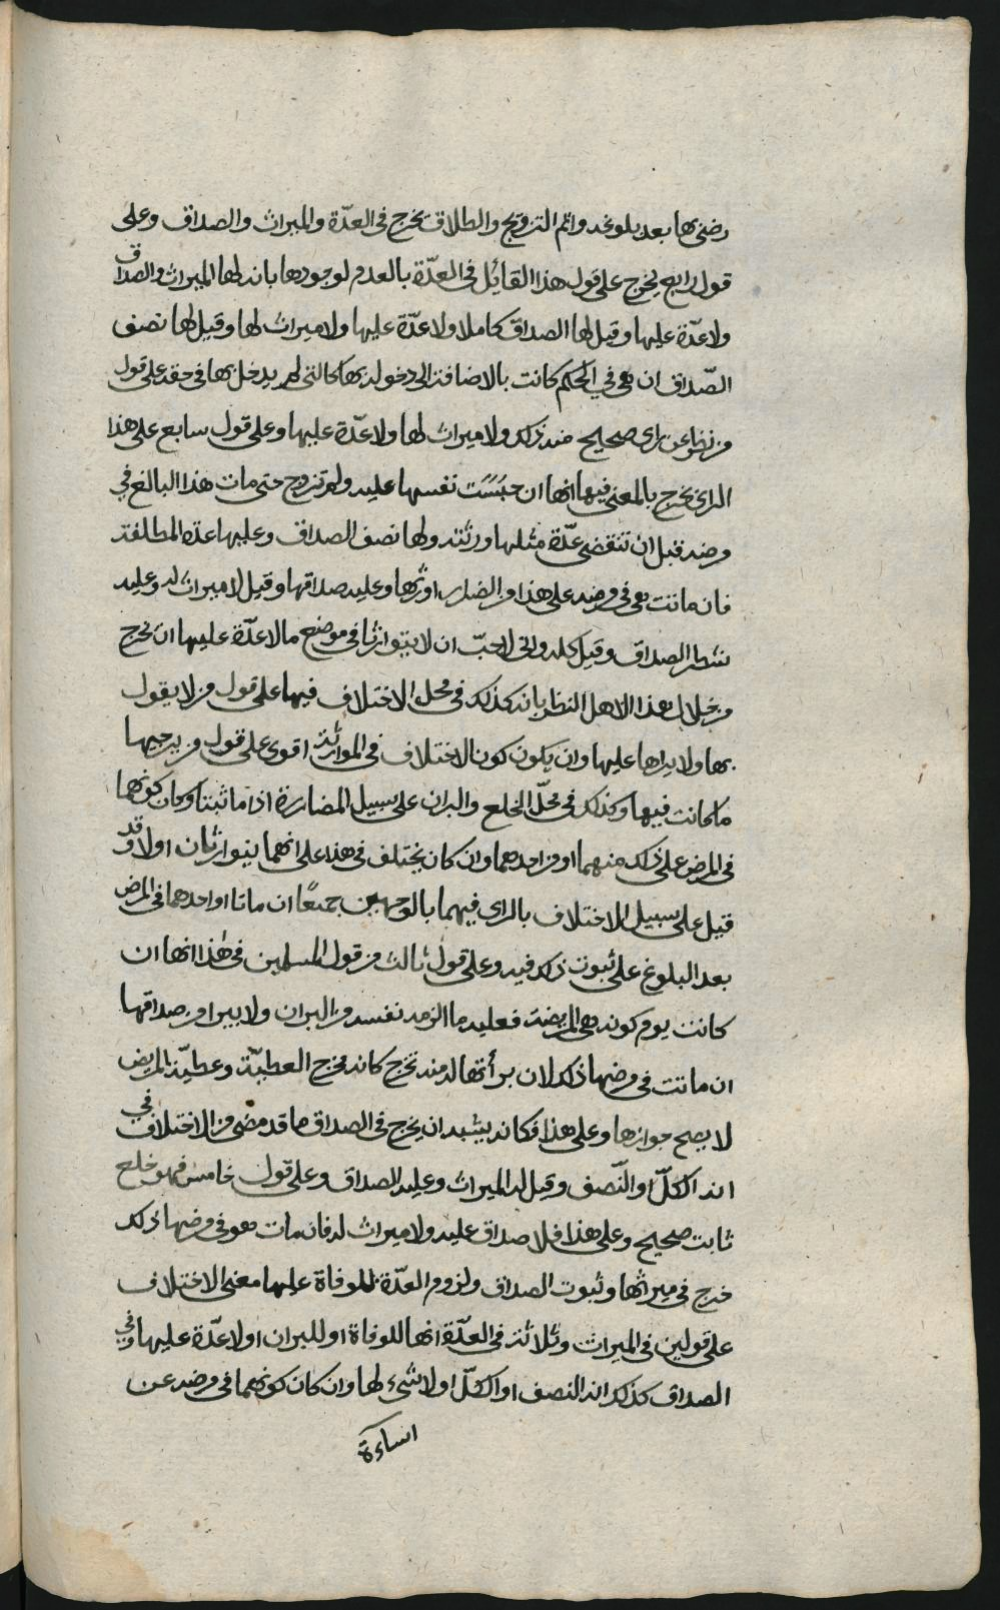 رضي بها بعد بلوغه واتم التزويج والطلاق يخرج في العدّة والميراث والصداق وعلى
قول رابع يخرج على قول هذا القائل في العدّة بالعدم لوجودها بانه لها الميراث والصداق
ولا عدّة عليها وقيل لها الصداق كاملا ولا عدّة عليها ولا ميراث لها وقيل لها نصف
الصّداق ان هي في الحكم كانت بالاضافة الى دخوله بها كالتي لم يدخل بها في حقه على قول
من راى صحيح منه ذلك ولا ميراث لها ولا عدّة عليها وعلى قول سابع على هذا
الراي يخرج بالمعنى فيها انها ان حبَسَت نفسها عليه ولم تزوج حتى مات هذا البالغ في
مرضه قبل ان تنقضي عدّة مثلها ورثته ولها نصف الصداق وعليها عدة المطلقة
فان ماتت هي في مرضه على هذا من الضرار اورثها وعليه صداقها وقيل لا ميراث له وعليه
شطر الصداق وقيل كله واني لاحبّ ان لا يتوارثا في موضع ما لا عدّة عليها ان يخرج
من خلال هذا لاهل النظر بانه كذلك في محل الاختلاف فيها على قول من لا يقول
بها ولا يراها عليها وان يكون كون الاختلاف في الموارثة اقوى على قول من يوجبها
ما كانت فيها وكذلك في محلّ الخلع والبران على سبيل المضاررة اذا ما ثبتا وكان كونهما
في المرض على ذلك منهما او من احدهما وان كان يختلف في هذا على انهما يتوارثان او لا وقد
قيل على سبيل الاختلاف بالراي فيهما بالوجهين جميعًا ان ماتا او احدهما في المرض
بعد البلوغ على ثبوت ذلك فيه وعلى قول ثالث من قول المسلمين في هذا انها ان
كانت يوم كونه هي المريضة فعليه ما الزمه نفسه من البران ولا يبرا من صداقها
ان ماتت في مرضها ذلك لان برأتها له منه تخرج كانه مخرج العطيّة وعطيّة المريض
لا يصح جوازها وعلى هذا فكانه يشبه ان يخرج في الصداق ما قد مضى من الاختلاف في
انه الكلّ او النّصف وقيل له الميراث وعليه الصداق وعلى قول خامس فهو خلع
ثابت صحيح وعلى هذا فلا صداق عليه ولا ميراث له فان مات هو في مرضها ذلك
خرج في ميراثها وثبوت الصداق ولزوم العدّة للموفاة عليها معنى الاختلاف
على قولين في الميراث وثلاثة في العدّة انها للوفاة او للبران او لا عدّة عليها وفي
الصداق كذلك انه النصف او الكلّ او لا شيء لها وان كان كونهما في مرضه عن
اساءة